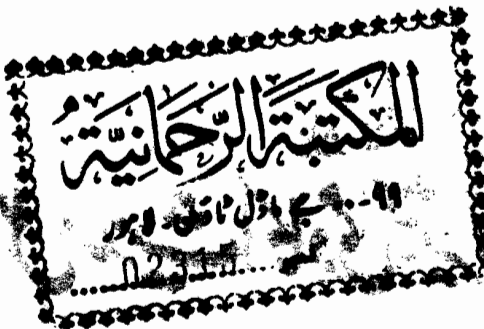 المكتَبَةُ الرَّحمَانِيَّةُ
۹۹... جے ماڈل ٹاؤن۔ لاہور